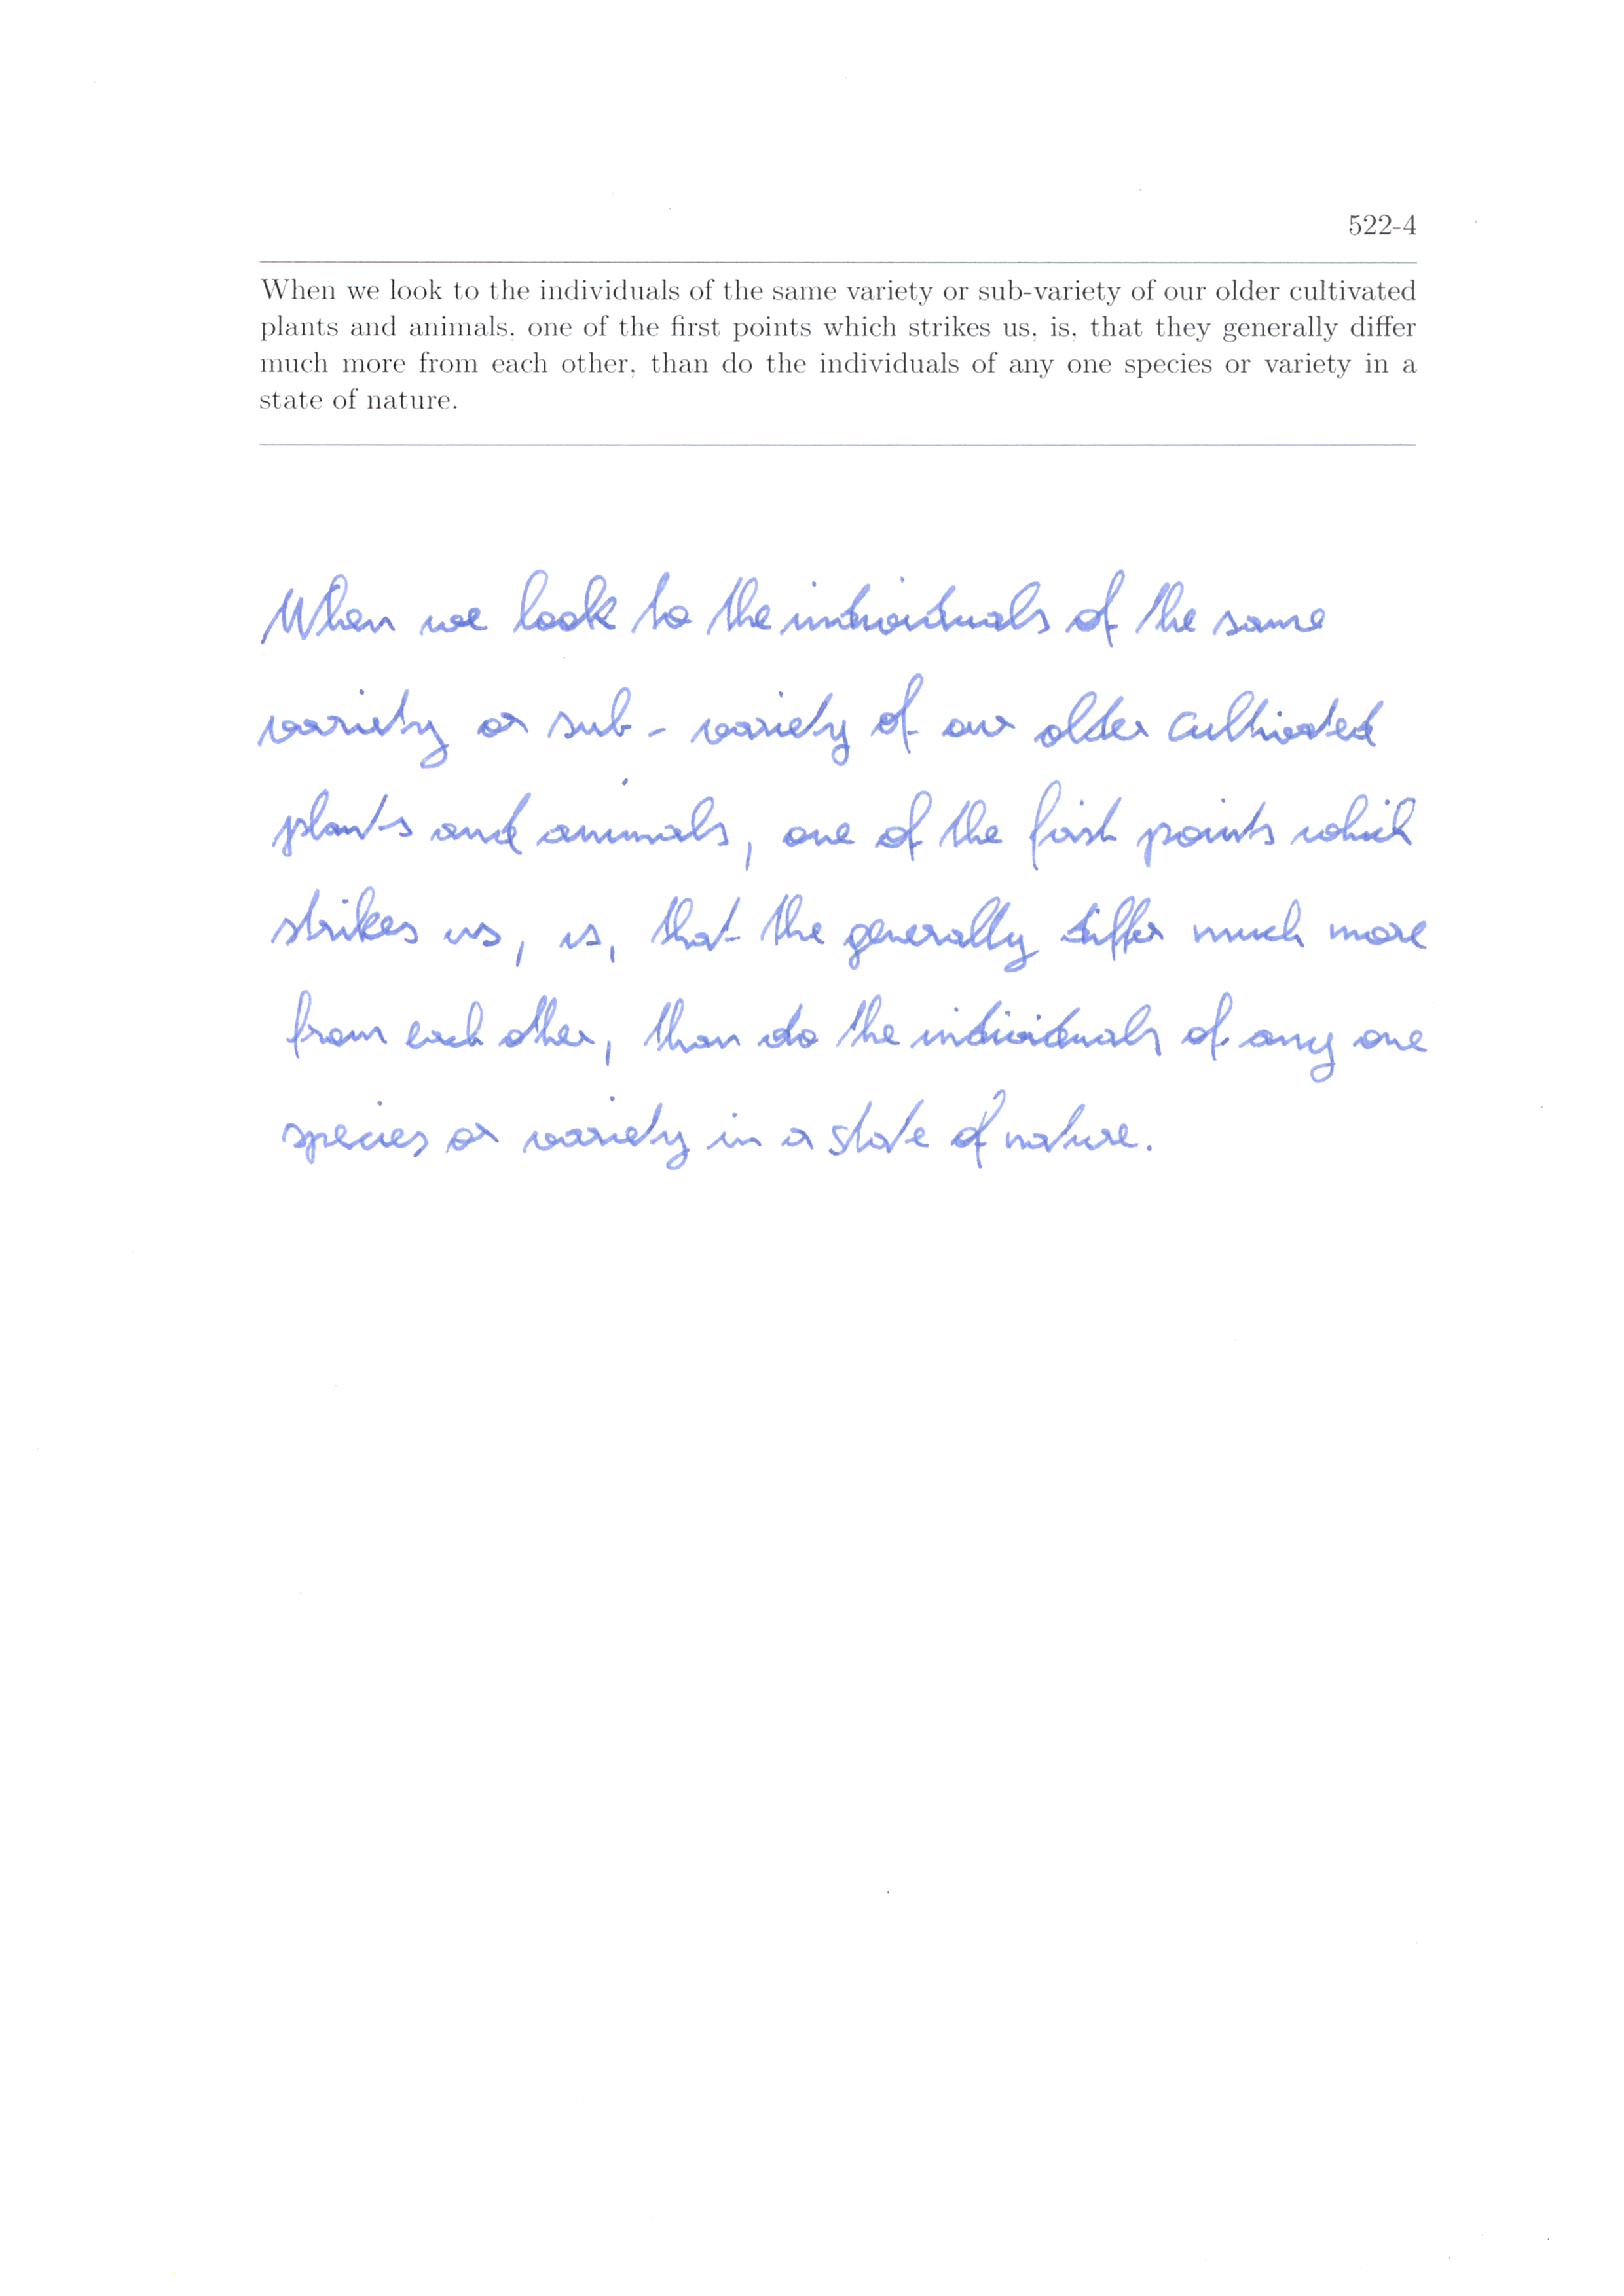 522-4
When we look to the individuals of the same variety or sub-variety of our older cultivated
plants and animals, one of the first points which strikes us, is, that they generally differ
much more from each other, than do the individuals of any one species or variety in a
state of nature.
When we look to the individuals of the same
variety or sub - variety of our older cultivated
plants and animals, one of the first points which
strikes us, is, that the generally differ much more
from each other, than do the individuals of any one
species or variety in a state of nature.